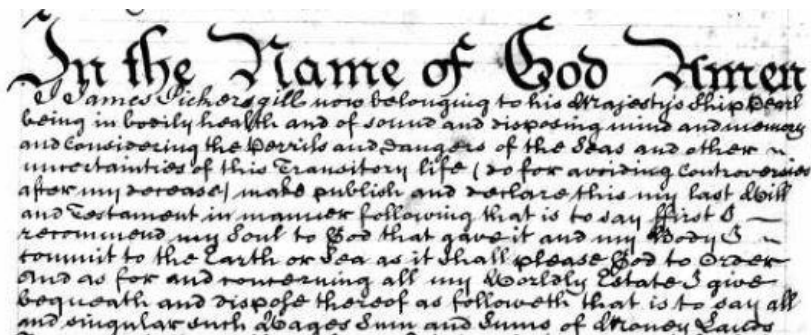 In the Name of God Amen
I James Pickersgill now belonging to his Majestys Ship Pearl
being in bodily health and of sound and disposing mind and memory
and Considering the Perrils and Dangers of the Seas and other
uncertainties of this Transitory life (do for avoiding Controversies
after my decease) make publish and declare this my last Will
and Testament in manner following that is to say ffirst I
recommend my Soul to God that gave it and my Body I
commit to the Earth or Sea as it shall please God to Order
And as for and concerning all my Worldly Estate I give
bequeath and dispose thereof as followeth that is to say all
and singular such Wages Sum and Sums of Money Lands